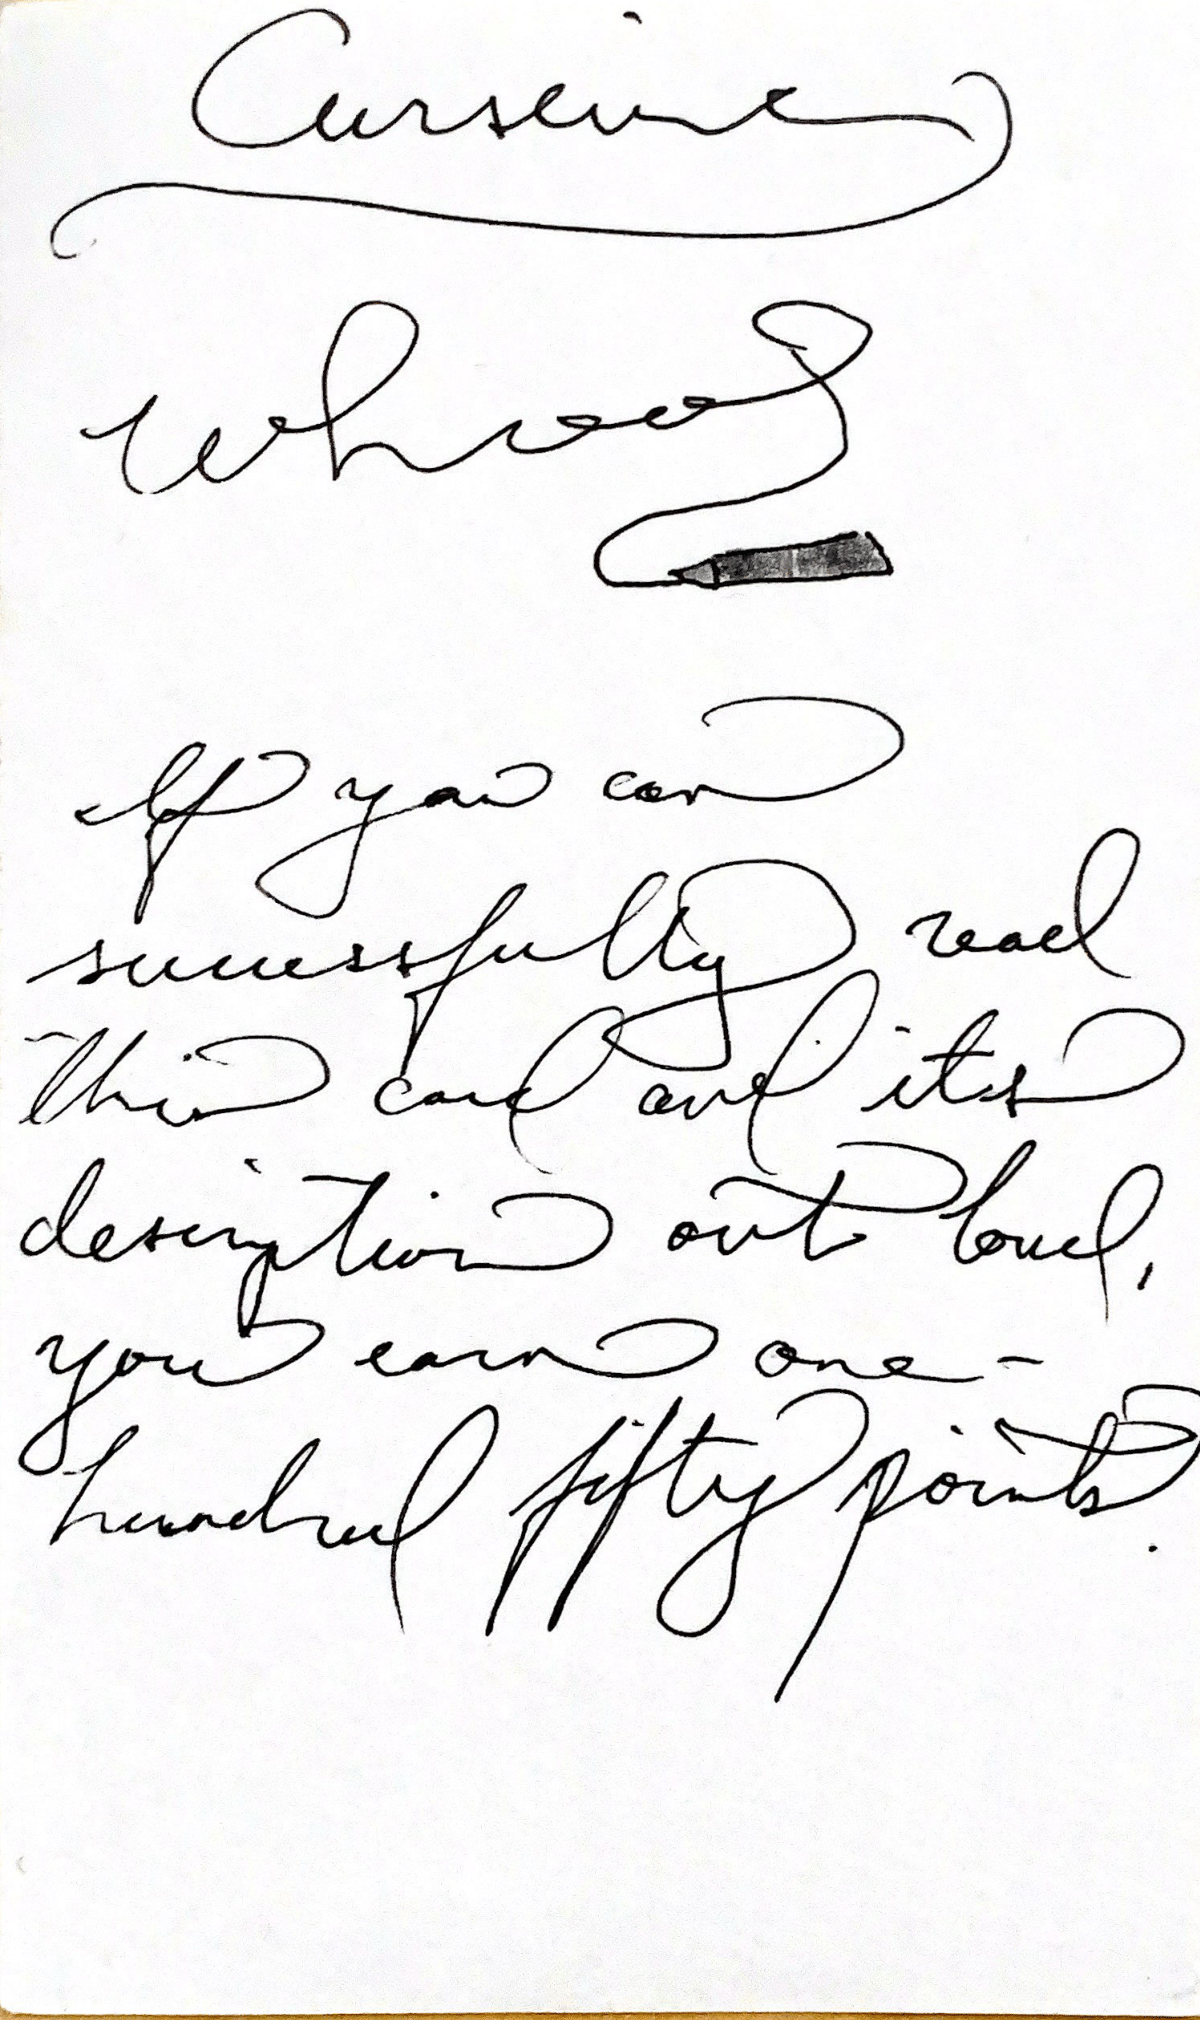 Cursive
If you can
successfully read
this card and its
description out loud,
you earn one-
hundred fifty points.